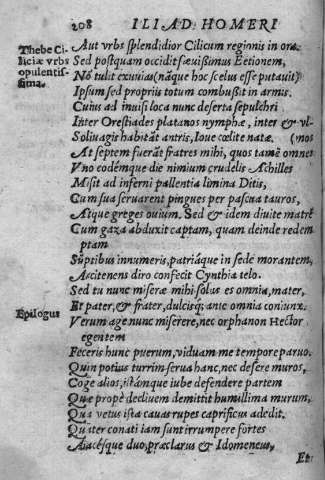 208 ILIAD. HOMERI
Thebe Ci-
liciæ vrbs
opulentis-
sima.
Aut vrbs splendidior Cilicum regionis in ora.
Sed postquam occidit sæuißimus Eetionem,
Nõ tulit exuuias (nãque hoc scelus esse putauit)
Ipsum sed propriis totum combußit in armis.
Cuius ad inuisi loca nunc deserta sepulchri
Inter Orestiades platanos nymphæ, inter & vl-
Soliuagis habitãt antris, Ioue cœlite natæ. (mos
At septem fuerãt fratres mihi, quos tamẽ omnes
Vno codémque die nimium crudelis Achilles
Misit ad inferni pallentia limina Ditis,
Cum sua seruarent pingues per pascua tauros,
Atque greges ouium. Sed & idem diuite matrẽ
Cum gaza abduxit captam, quam deinde redem
ptam
Sũptibus innumeris, patriáque in sede morantem,
Arcitenens diro confecit Cynthia telo.
Sed tu nunc miseræ mihi solus es omnia, mater,
Et pater, & frater, dulcisq; ante omnia coniunx.
Epilogus
Verum age nunc miserere, nec orphanon Hector
egentem
Feceris hunc puerum, viduam me tempore paruo.
Quin potius turrim serua hanc, nec desere muros,
Coge alios, istámque iube defendere partem
Quæ propè decliuem demittit humillima murum,
Qua vetus ista cauas rupes caprificus adedit.
Quater conati iam sunt irrumpere fortes
Aiacésque duo, præclarus & Idomeneus,
Et